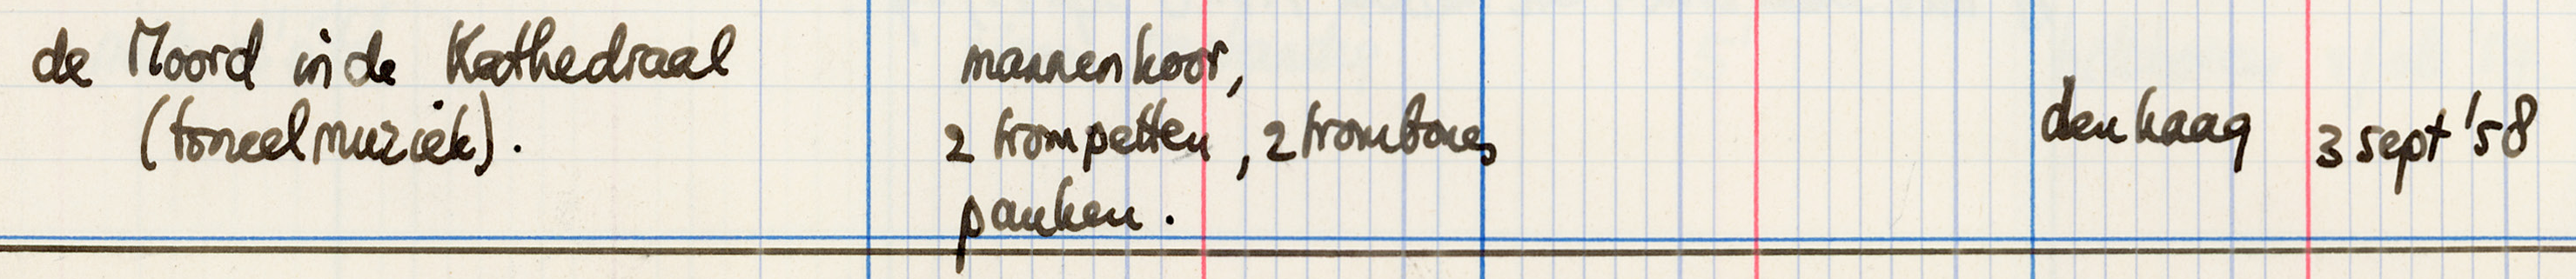 de Moord in de Kathedraal
(toneelmuziek).
mannenkoor,
2 trompetten, 2 trombones
pauken.
den haag 3 sept '58